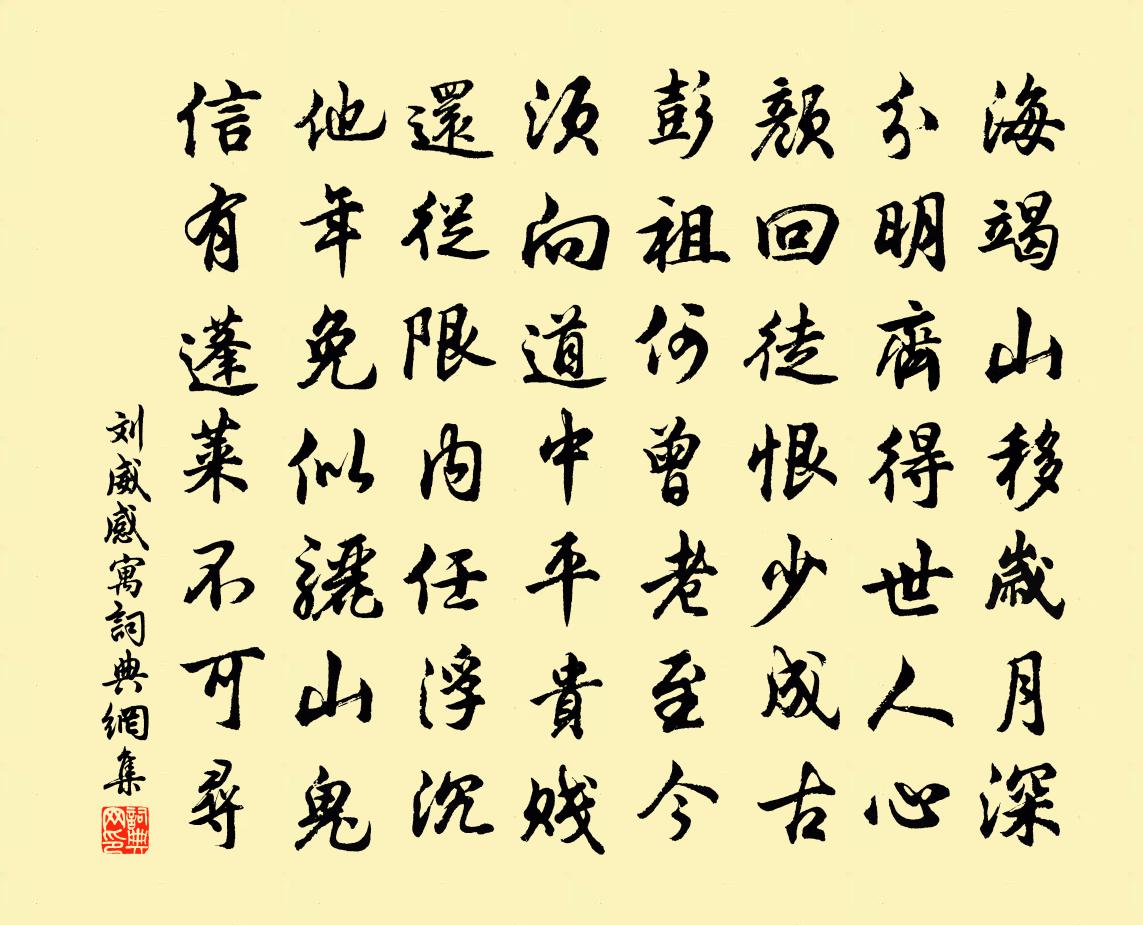 海竭山移歲月深
分明齊得世人心
顏回徒恨少成古
彭祖何曾老至今
須向道中平貴賤
還從限內任浮沉
他年免似驪山鬼
信有蓬萊不可尋
刘威感寓詞典網集
詞典网印